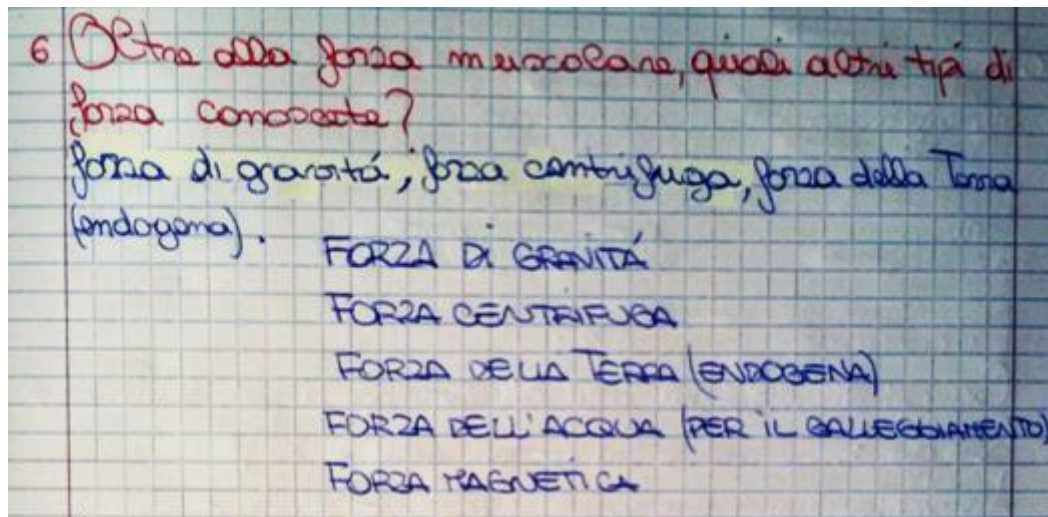 6 Oltre alla forza muscolare, quali altri tipi di
forza conoscete?
forza di gravitá, forza centrifuga, forza della Terra
(endogena).
FORZA DI GRAVITÁ
FORZA CENTRIFUGA
FORZA DELLA TERRA (ENDOGENA)
FORZA DELL'ACQUA (PER IL GALLEGGIAMENTO)
FORZA MAGNETICA